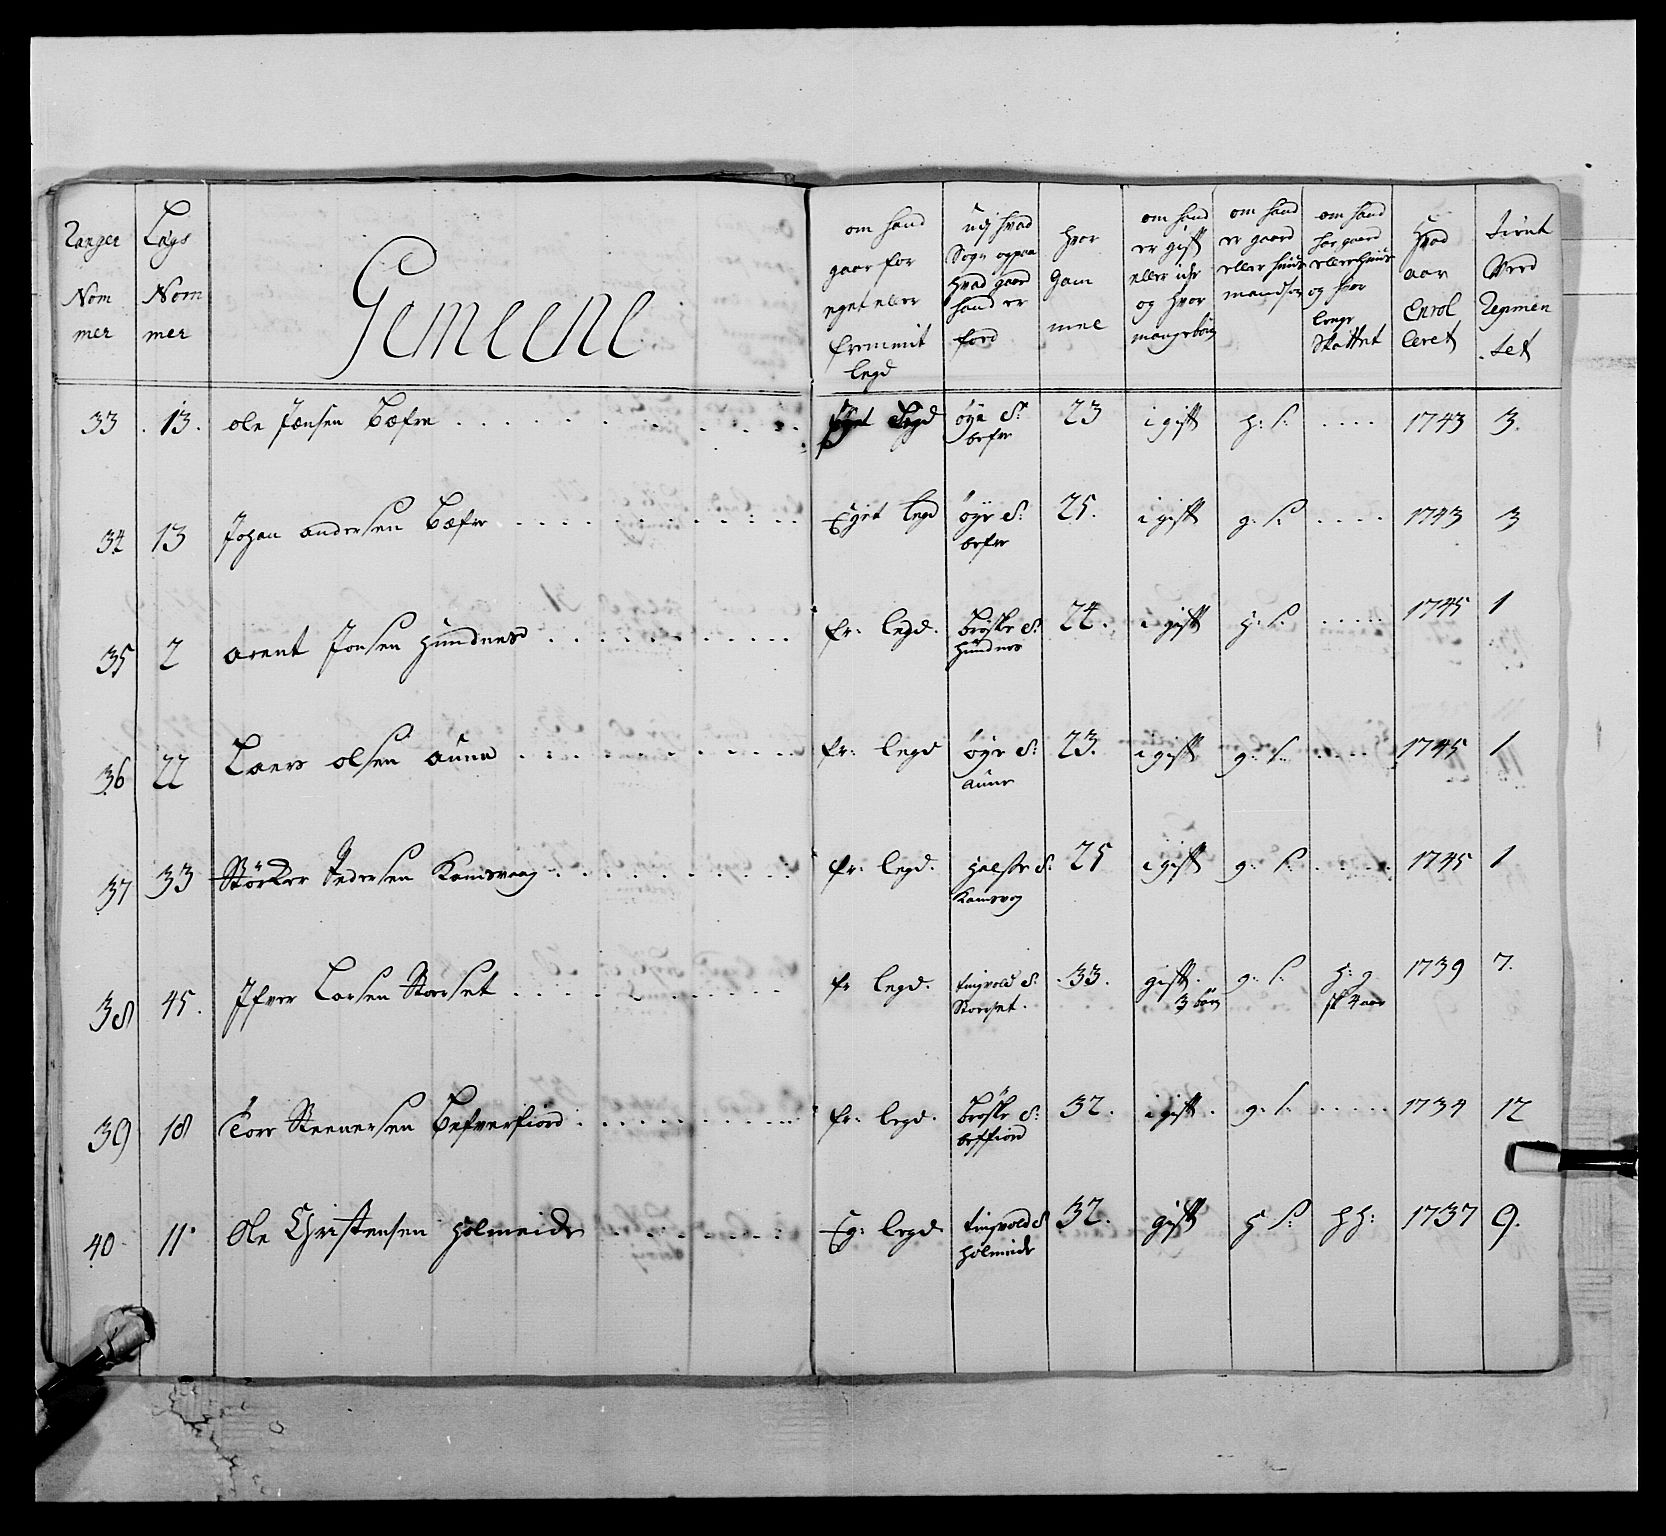 Ranger Nom mer
Lægs Nom mer
Gemeene
om hand gaar for eget eller fremmit legd
udj hvad Sogn og paa hvad gaard hand er förd
hvor gam mel
om hand er gift eller icke og hvor mange börn
om hand er gaard eller huus mands s
om hand har gaard eller huus og hvor lenge Skattet
Hvad aar Enrol leret
tient Ved Regimen tet
33 13. ole Jensen Bæfre Eget Legd öye S: befre 23 i gift h: S: 1743 3.
34 13 Johan andersen Bæfre Eget legd öye S: befre 25. i gift g: S: 1743 3
35 2 arent Jonsen Hundnes fr: legd. Beöske S: Hundnes 24. i gift h: S: 1745 1
36 22 Laers olsen aune fr: legd öye S: aune 23. i gift g: S: 1745 1
37 33 Störker Pedersen Kamsvaag fr: legd. Halse S: Kamsvog 25 i gift g: S: 1745 1
38 45. Ifver Larsen Storset fr legd. tingvold S: Storset. 33. gift. 3 börn g: S: h: g sk 4 aar 1739 7.
39 18 Tore Steenersen Befverfiord fr: legd. Beöske S: beffiord 32. i gift. g. S: 1734 12
40 11. Ole Christensen Holmeide Eg: legd tingvold S Holmeide 32. gift H S: h h: 1737 9.